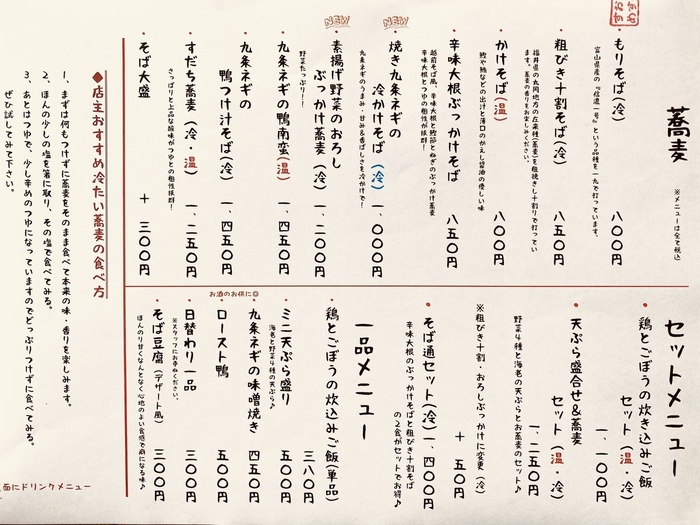 おすすめ
蕎麦
※メニューは全て税込
もりそば(冷) 八〇〇円
富山県産の『信濃一号』という品種を一九で打っています。
粗びき十割そば(冷) 八五〇円
福井県の丸岡地方の在来種(蕎麦)を粗挽きし十割りで打ってい
ます。蕎麦の香りをお楽しみください。
かけそば(温) 八〇〇円
鰹や鯖などの出汁と薄口のかえし醤油の優しい味
辛味大根ぶっかけそば 八五〇円
越前そば風、辛味大根と鰹節とねぎのぶっかけ蕎麦
辛味大根とつゆの相性が抜群!
NEW
焼き九条ネギの
冷かけそば(冷) 一、〇〇〇円
九条ネギのうまみ・甘み&香ばしさを冷かけで!
NEW
素揚げ野菜のおろし
ぶっかけ蕎麦(冷) 一、二〇〇円
野菜たっぷり!!
九条ネギの鴨南蛮(温) 一、四五〇円
九条ネギの
鴨つけ汁そば(冷) 一、四五〇円
すだち蕎麦(冷・温) 一、二五〇円
さっぱりと上品な酸味がつゆとの相性抜群!
そば大盛 + 三〇〇円
◆店主おすすめ冷たい蕎麦の食べ方
1、まずは何もつけずに蕎麦をそのまま食べて本来の味・香りを楽しみます。
2、ほんの少しの塩を箸に取り、その塩で食べてみる。
3、あとはつゆで、少し辛めのつゆになっていますのでどっぷりつけずに食べてみる。
ぜひ試してみて下さい。
セットメニュー
鶏とごぼうの炊き込みご飯
セット(温・冷)
一、一〇〇円
天ぷら盛合せ&蕎麦
セット(温・冷)
一、二五〇円
野菜4種と海老の天ぷらとお蕎麦のセット♪
※粗びき十割・おろしぶっかけに変更(冷)
+ 五〇円
そば通セット(冷) 一、四〇〇円
辛味大根のぶっかけそばと粗びき十割そば
の2食がセットでお得♪
一品メニュー
鶏とごぼうの炊込みご飯(単品)
三八〇円
ミニ天ぷら盛り 五〇〇円
海老と野菜4種の天ぷら♪
九条ネギの味噌焼き 四五〇円
お酒のお供に◎
ロースト鴨 五〇〇円
日替わり一品 三〇〇円
※スタッフにお尋ねください。
そば豆腐(デザート風) 三〇〇円
ほんのり甘くなんとなく心地のよい食感で癖になる味♪
面にドリンクメニュー